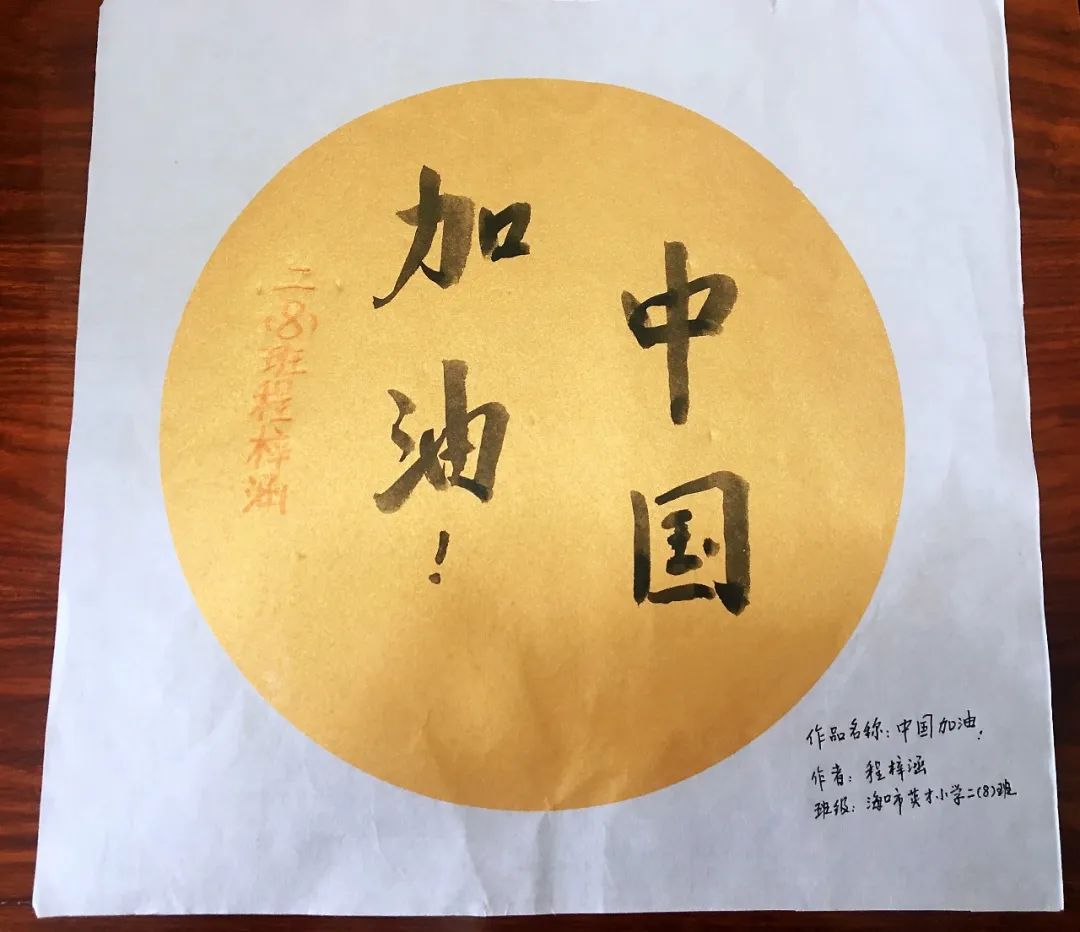 中国
加油！
二(8)班程梓涵
作品名称：中国加油！
作者：程梓涵
班级：海口市英才小学二(8)班